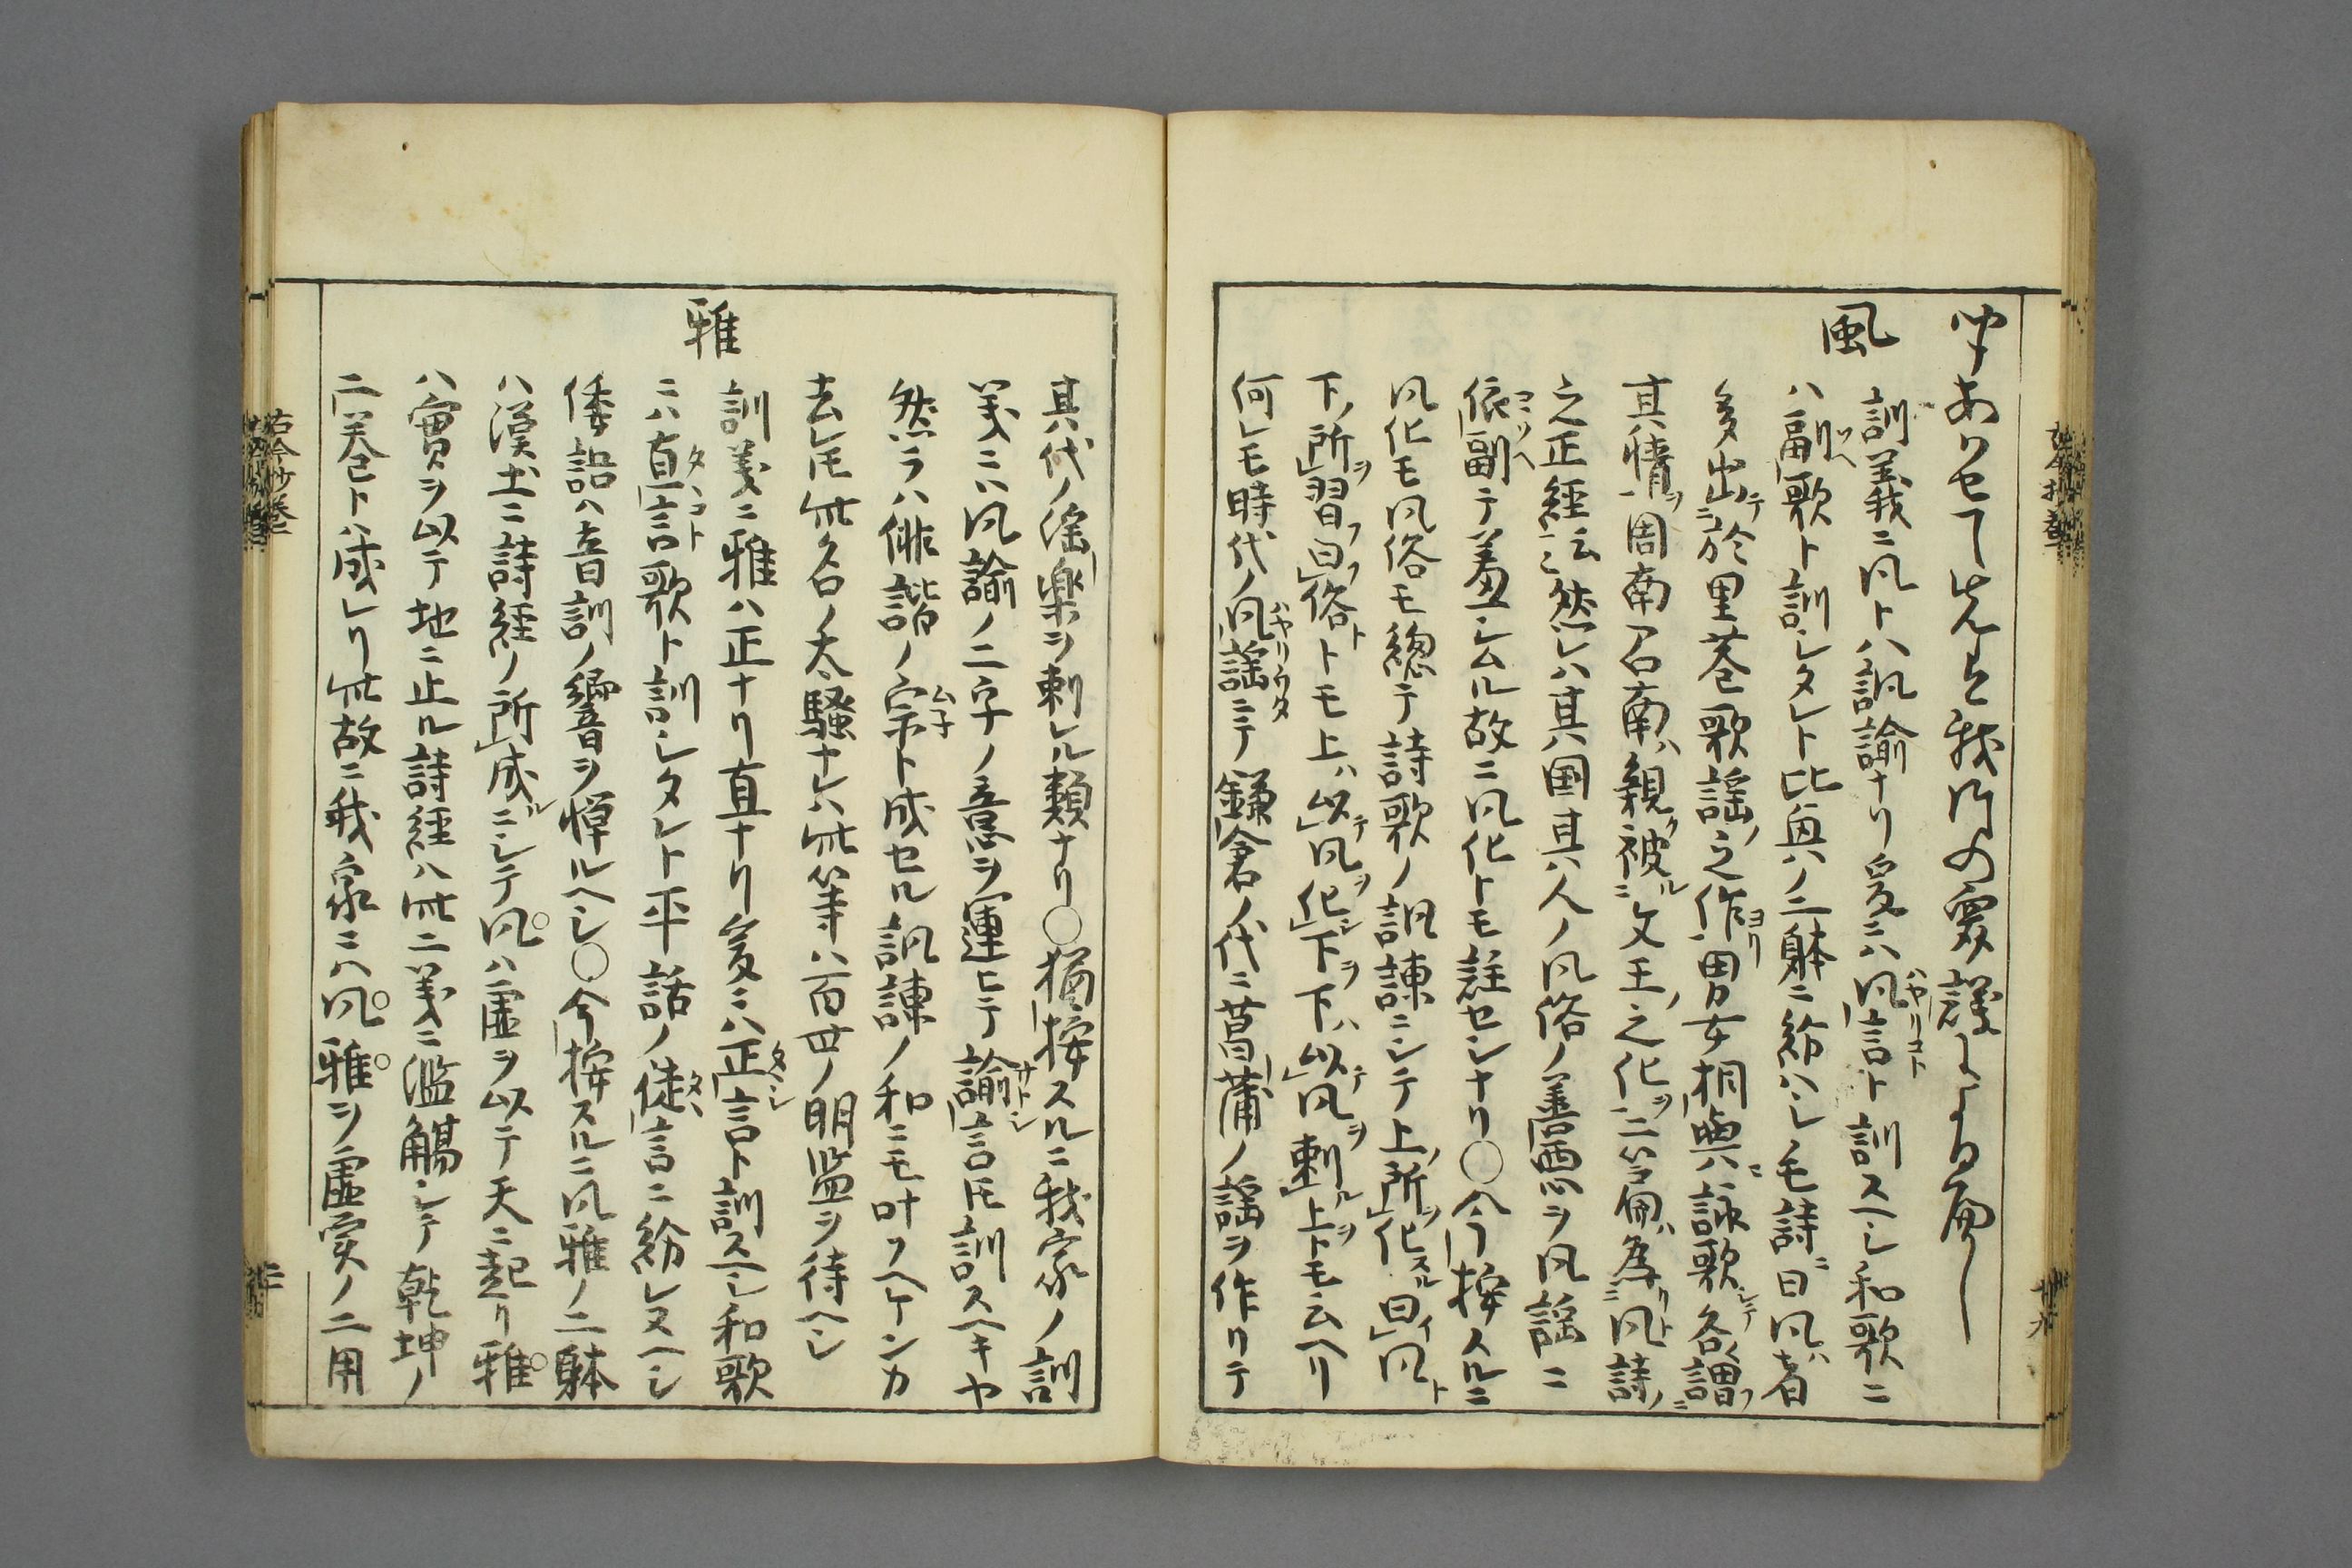 風
訓義ニ風トハ諷諭ナリ爰ニハ風言ト訓スヘシ和歌ニ
ハ副歌ト訓シタレト比興ノ二躰ニ紛ハシ毛詩ニ曰風ハ者
多出於里巷歌謡之作男女相與ニ詠歌シテ各謂フ
其情周南召南ハ親被文王之化ヲ為風詩
之正経云云然レハ其国其人ノ風俗ノ善悪ヲ風謡ニ
依副テ羞シムル故ニ風化トモ註セシナリ○今按スルニ
風化モ風俗モ総テ詩歌ノ諷諫ニシテ上ノ所化スル曰風ト
下ノ所習曰俗トトモ上ハ以テ風ヲ化シ下ヲ下ハ以テ風ヲ刺ル上ヲトモ云ヘリ
何レモ時代ノ風謡ニテ鎌倉ノ代ニ菖蒲ノ謡ヲ作リテ
其代ノ淫楽ヲ刺レル類ナリ○猶按スルニ我家ノ訓
義ニハ風諭ノ二字ノ意ヲ運ヒテ諭言トモ訓スヘキヤ
然ラハ俳諧ノ宗ト成セル諷諫ノ和ニモ叶フヘケンカ
去レトモ此名ノ太騒ナレハ此等ハ百世ノ明鑑ヲ待ヘシ
雅
訓義ニ雅ハ正ナリ直ナリ爰ニハ正言ト訓スヘシ和歌
ニハ直言歌ト訓シタレト平話ノ徒言ニ紛レヌヘシ
倭語ハ音訓ノ響ヲ憚ルヘシ○今按スルニ風雅ノ二躰
ハ漢土ニ詩経ノ所成ルニシテ風ハ虚ヲ以テ天ニ起リ雅
ハ實ヲ以テ地ニ止ル詩経ハ此二義ニ濫觴シテ乾坤ノ
二巻トハ成レリ此故ニ我家ニハ風雅ヲ虚実ノ二用
古今抄巻二